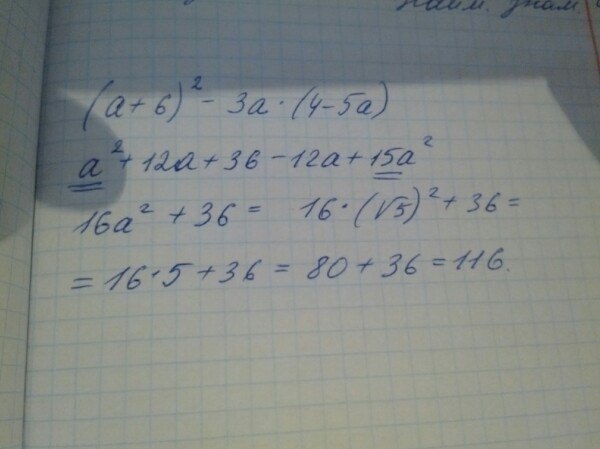 наим. знам.
(a+6)² - 3a · (4-5a)
a² + 12a + 36 - 12a + 15a²
16a² + 36 = 16 · (√5)² + 36 =
= 16 · 5 + 36 = 80 + 36 = 116.